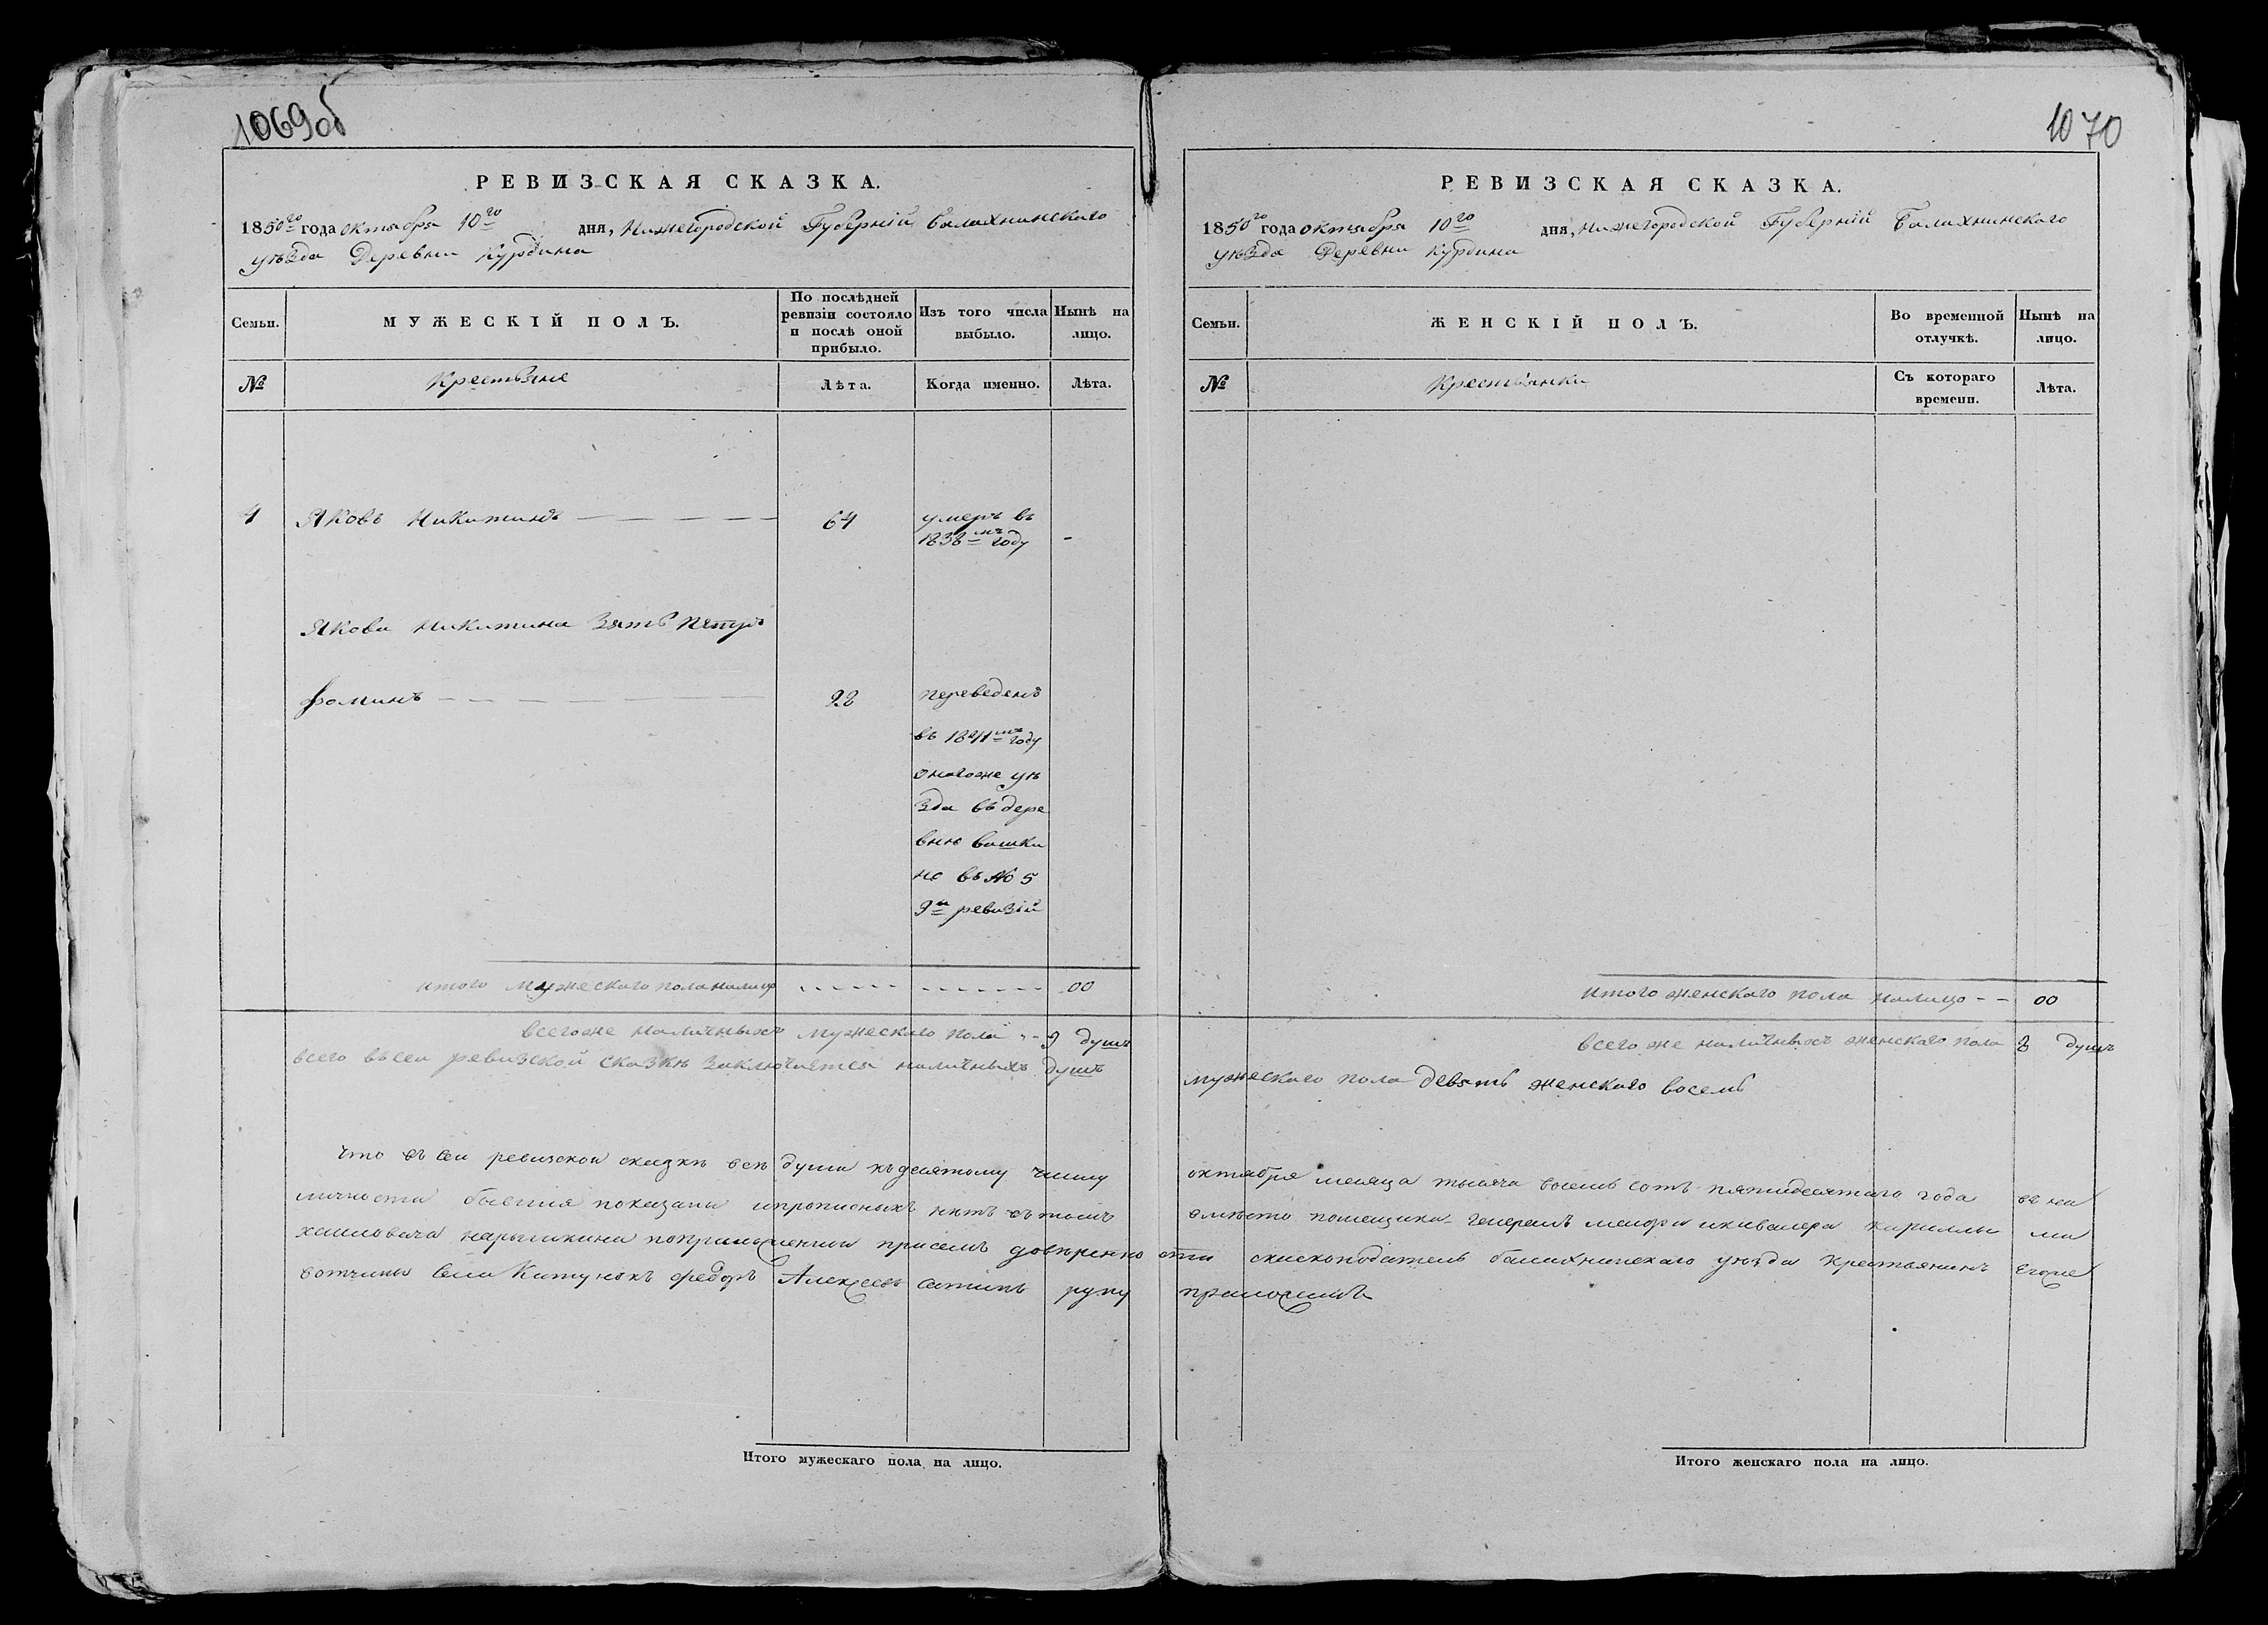 1069об
РЕВИЗСКАЯ СКАЗКА.
1850го года октября 10го дня, Нижегородской Губерніи Балахнинскаго
уѣзда Деревни Курдина
Семьи. МУЖЕСКІЙ ПОЛЪ. По послѣдней ревизіи состояло и послѣ оной прибыло. Изъ того числа выбыло. Нынѣ на лицо.
№ Крестьяне Лѣта. Когда именно. Лѣта.
4 Яковъ Никитинъ 64 умеръ въ
1838мъ году -
Якова Никитина Зять Петръ
Фоминъ 22 переведенъ
въ 1841мъ году
оногоже уѣ
зда въ дере
вню
но въ № 5
9й ревизіи
итого мужескаго пола налицо 00
всегоже наличныхъ мужескаго пола 9 душъ
всего въ сей ревизской сказкѣ заключается наличныхъ душъ
Что въ сей ревизской сказкѣ всѣ души къ десятому числу
личности бывшия показаны и прописныхъ нѣтъ въ томъ
хаиловича нарышкина по приложенной при семъ довѣренно
вотчины села Катунокъ Федоръ Алексеевъ руку
Итого мужескаго пола на лицо.
1070
РЕВИЗСКАЯ СКАЗКА.
1850го года октября 10го дня, Нижегородской Губерніи Балахнинскаго
уѣзда Деревни Курдина
Семьи. ЖЕНСКІЙ ПОЛЪ. Во временной отлучкѣ. Нынѣ на лицо.
№ Крестьянки Съ котораго времени. Лѣта.
итого женскаго пола налицо - - 00
всего же наличныхъ женскаго пола 8 душъ
мужескаго пола девять женскаго восемь
октября месяца тысяча восемь сотъ пятидесятаго года въ на
вместо помещика Генералъ маиора и кавалера Кириллы ми
сти скаскоподатель балахнинскаго уѣзда крестьянинъ Егоже
приложилъ
Итого женскаго пола на лицо.